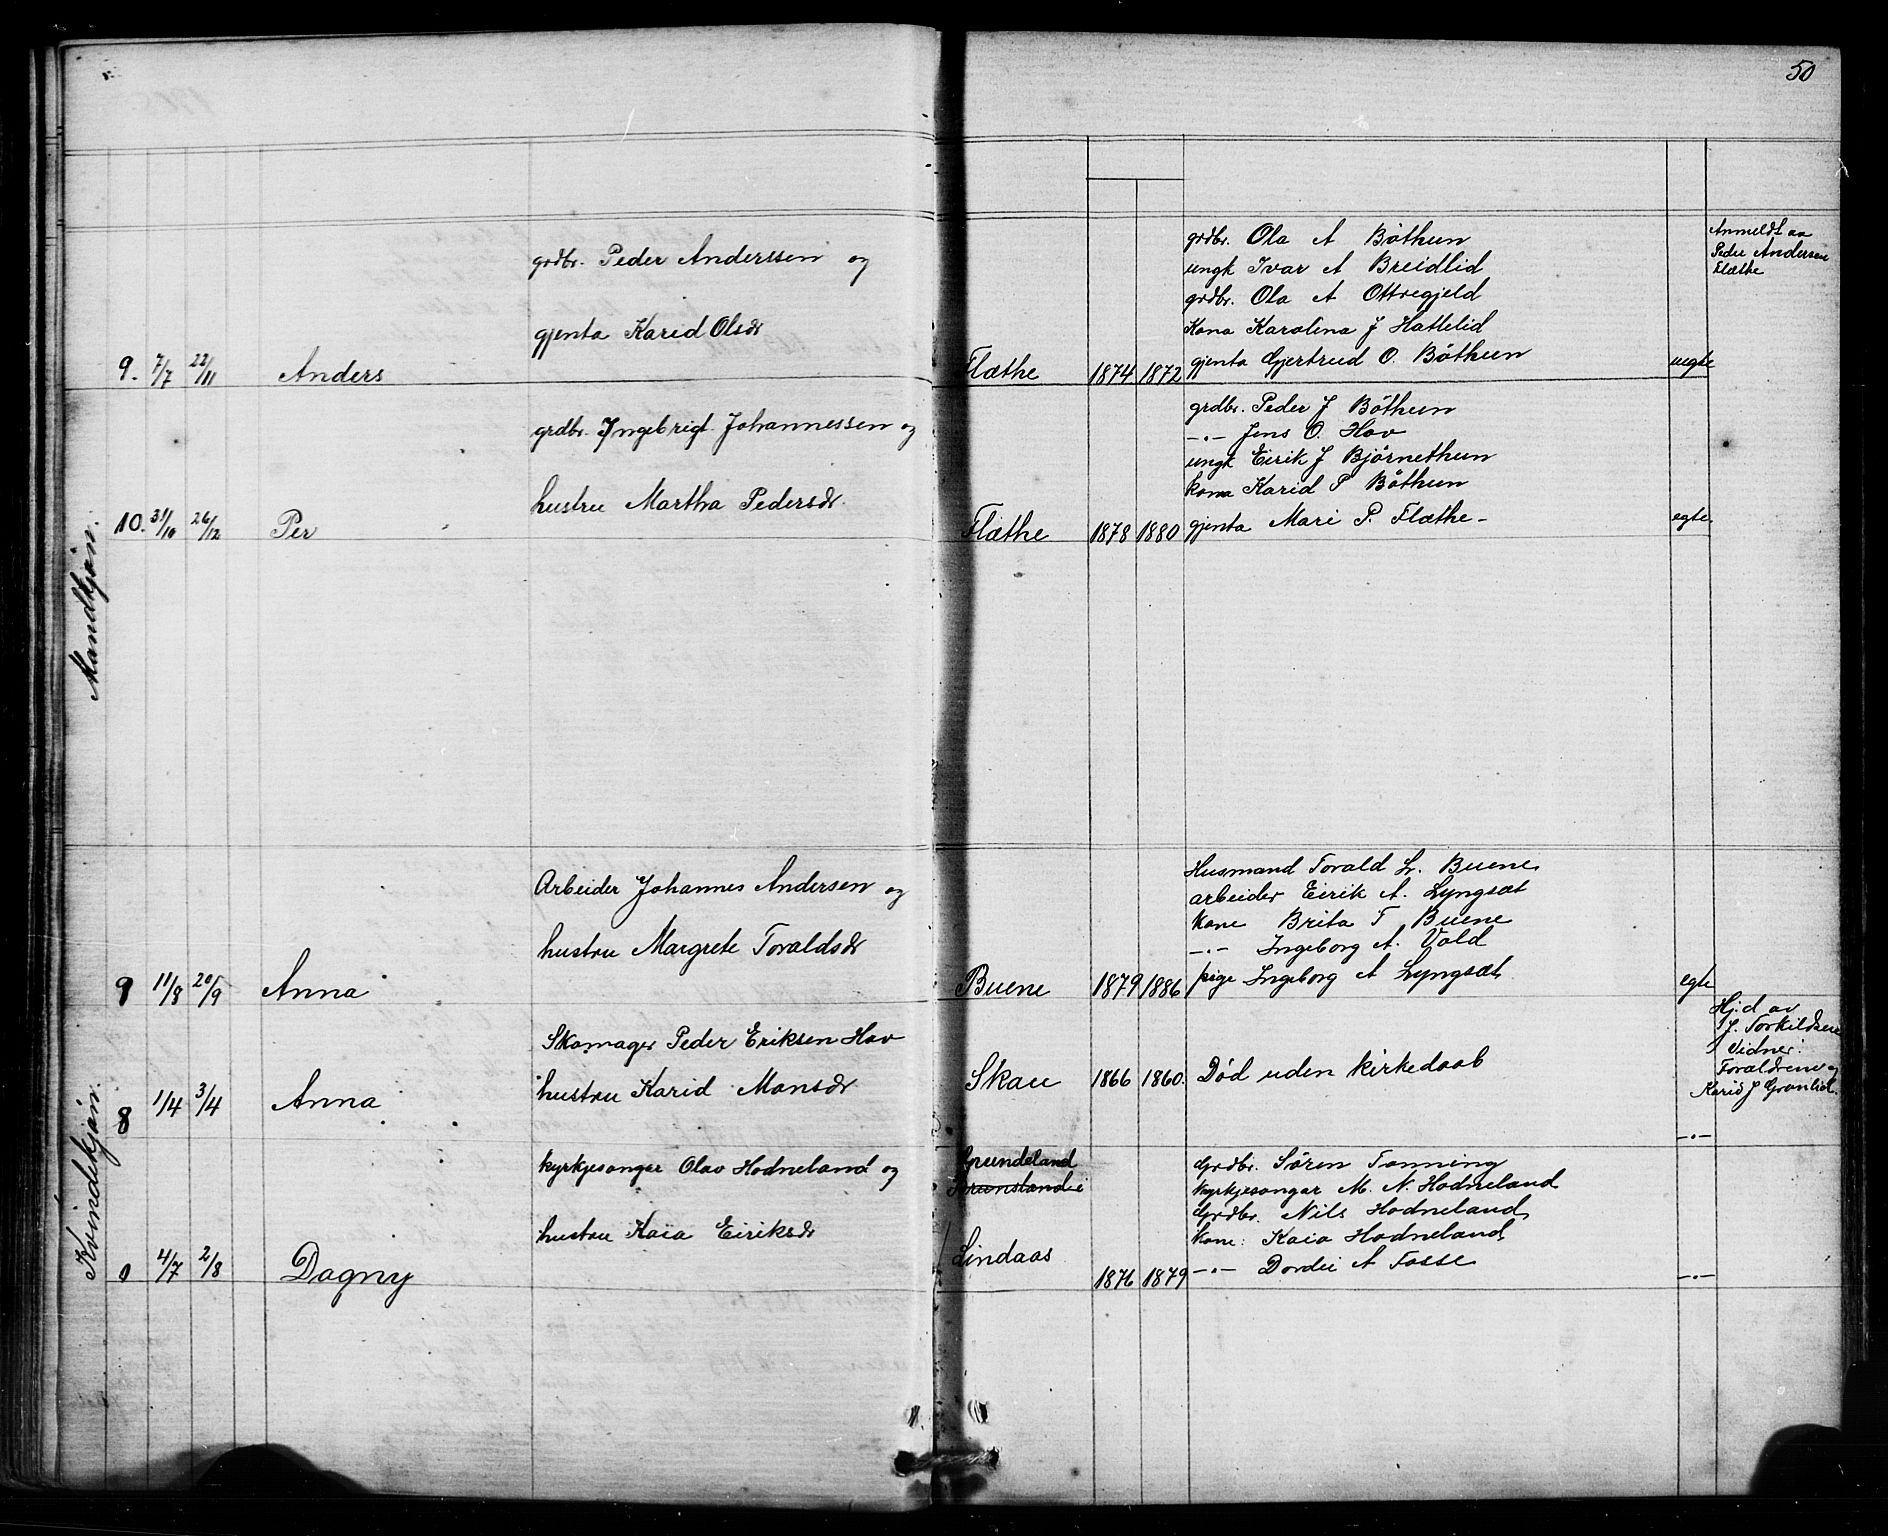 50
Mandkjøn.
grdbr. Peder Anderssen og
gjenta Karid Olsdr
9. 7/7 22/11 Anders
Flæthe 1874 1872
grdbr. Ola A Bøthun
ungk Ivar A Breidlid
grdbr. Ola A Ottregjeld
Kona Karolina J Hattelid
gjenta Gjertrud O. Bøthun
uegte
Anmeldt av
Peder Andersen
Flæthe
grdbr. Ingebrigt Johannessen og
hustru Martha Pedersdr.
10. 31/10 26/12 Per
Flæthe 1878 1880
grdbr. Peder J Bøthun
-"- Jens O. Hov
ungk Eirik J Bjørnethun
kona Karid P Bøthun
gjenta Mari P. Flæthe-
egte
Kvindekjøn.
Arbeider Johannes Andersen og
hustru Margrete Toraldsdr
9 11/8 20/9 Anna
Buene 1879 1886
Husmand Torald L. Buene
arbeider Eirik A. Lyngsæt
kone Brita T Buene
-"- Ingeborg A. Vold
pige Ingeborg A Lyngsæt
egte
Skomager Peder Eriksen Hov
hustru Karid Monsdr
8 1/4 3/4 Anna
Skau 1866 1860.
Død uden kirkedaab
-"-
Hj.d av
J. Torkildsen
Vidner:
Foraldrene og
Karid J Grønlid.
kyrkjesongar Olav Hodneland og
hustru Kaia Eiriksdr
4/7 2/8 Dagny
Grundeland i
Lindaas
1876 1879
Grdbr. Søren Tonning
kyrkjesongar M. N. Hodneland
Grdbr. Nils Hodneland
Kone: Kaia Hodneland
-"- Dordei A Fosse
-"-